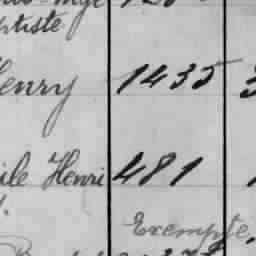 ptiste
enry 1435
ile Henri 481
Exempte.